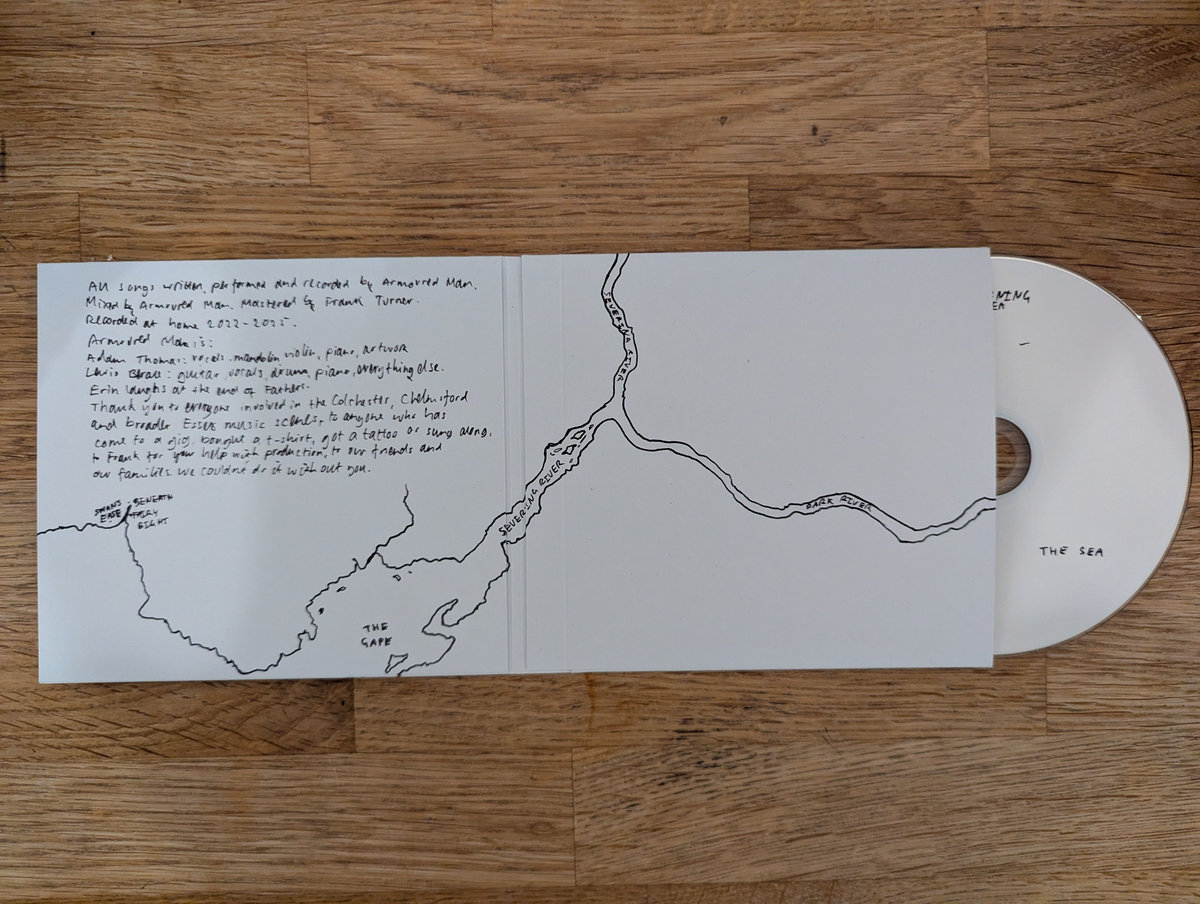 All songs written, performed and recorded by Armoured Man.
Mixed by Armoured Man. Mastered by Frank Turner.
Recorded at home 2022-2025.
Armoured Man is:
Adam Thomas: vocals, mandolin, violin, piano, artwork
Lewis : guitar, vocals, drums, piano, everything else.
Erin laughs at the end of Fathers.
Thank you to everyone involved in the Colchester, Chelmsford
and broader Essex music scenes, to anyone who has
come to a gig, bought a t-shirt, got a tattoo or sung along,
to Frank for your help with production, to our friends and
our families. We couldn't do it without you.
SWANS
EDGE
BENEATH
BIGHT
THE
GAPE
SEVERING RIVER
SEVERING RIVER
DARK RIVER
NING
EA
THE SEA